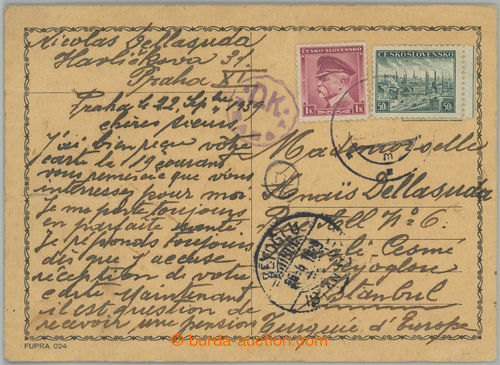 Nicolas Dellaguda
Havlíčkova 31
Praha XI
Praha le 22 1939
chères
J'ai bien reçu votre
carte le 19 courant
vous remercie que vous
interressez pour moi
Je me porte toujours
en parfaite santé.
Je réponds toujours
dès que j'accuse
réception de votre
carte Maintenant
il est question de
recevoir une pension
ČESKO-SLOVENSKO
1K 1K
ČESKOSLOVENSKO
50h 50h
DK.
Mademoiselle
Anaïs Dellaguda
No 6
Cesmé
Beyoglou
Istanbul
Turquie d'Europe
BEYOGLU
FUPRA 024
© burda-auction.com